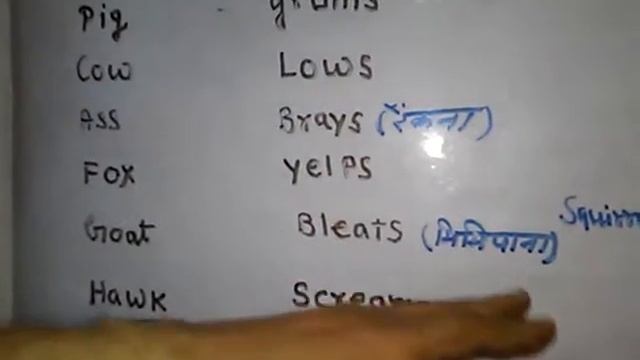 Pig
Cow Lows
Ass Brays (रेंकना)
Fox Yelps
Goat Bleats (मिमियाना)
Hawk